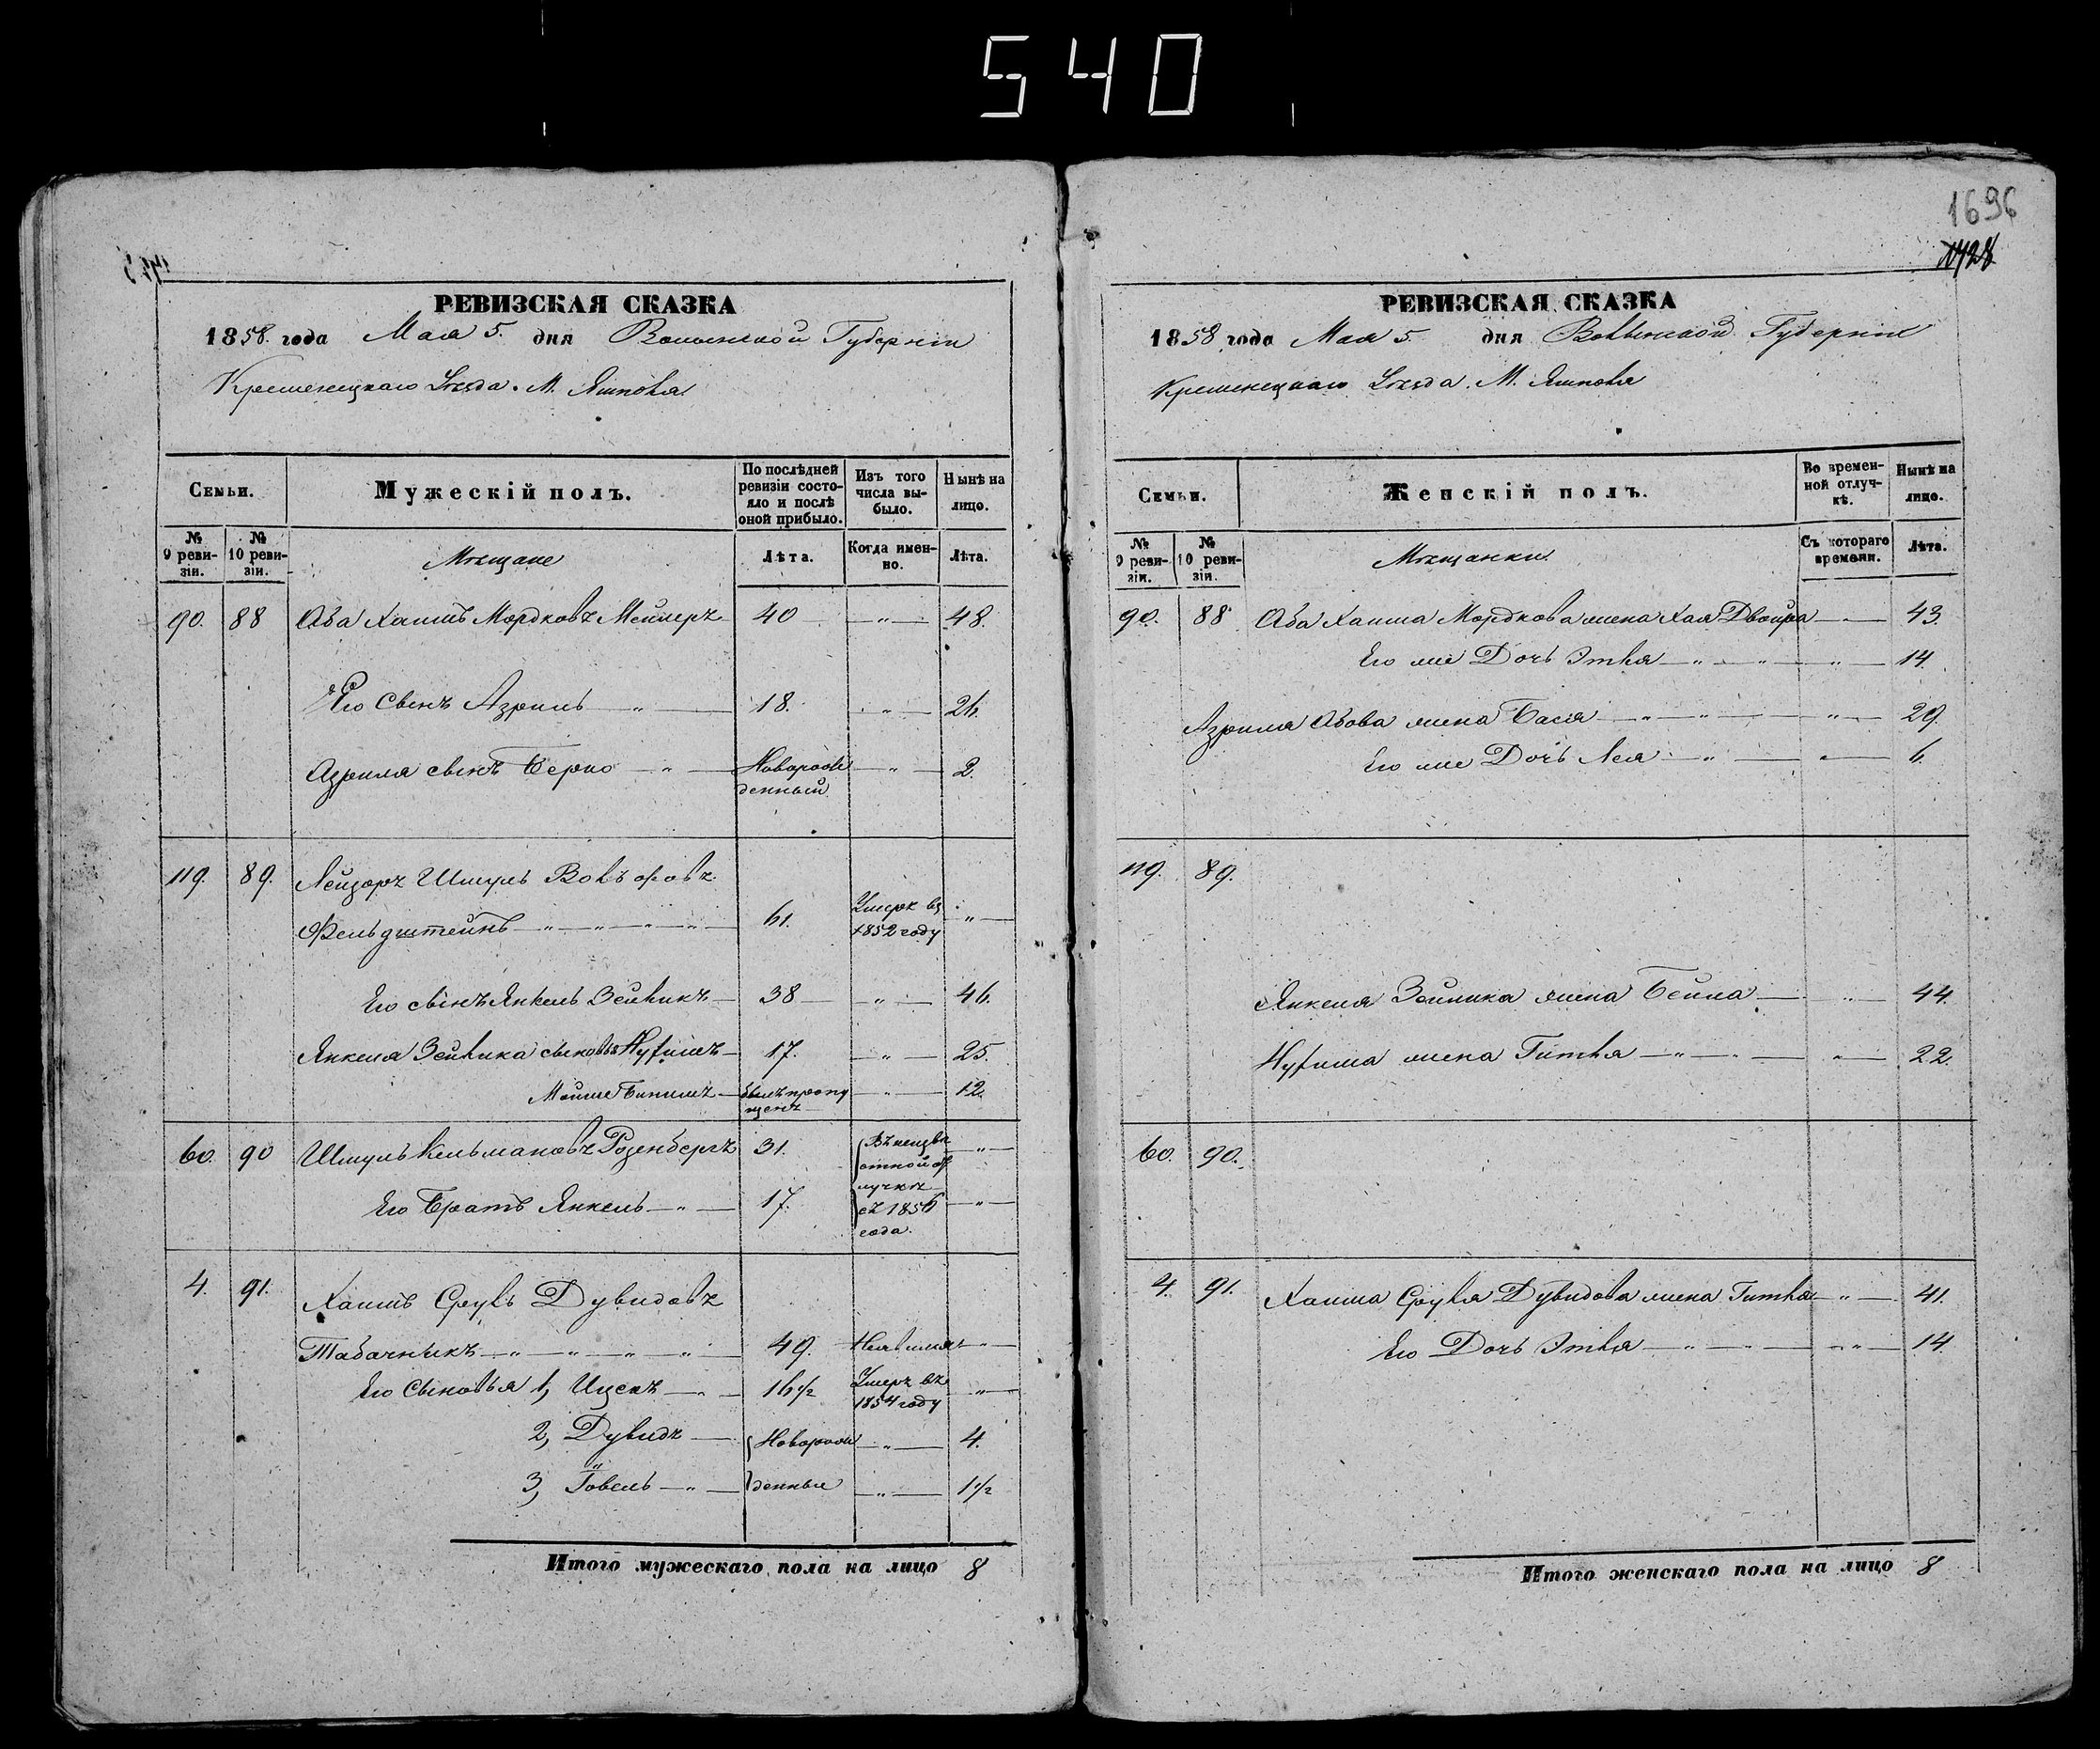 540
РЕВИЗСКАЯ СКАЗКА
1858. года Мая 5. дня Волынской Губерніи
Кременецкаго Уѣзда. М. Ямполя.
Семьи.
Мужескій полъ.
По послѣдней ревизіи состояло и послѣ оной прибыло.
Изъ того числа выбыло.
Нынѣ на лицо.
№ 9 ревизіи.
№ 10 ревизіи.
Мѣщане
Лѣта.
Когда именно.
Лѣта.
90. 88 Аба Хаимъ Мордковъ Мейлеръ 40 — „ — 48.
Его Сынъ Азриль — „ — 18. — „ — 26.
Азриля сынъ Берко — „ — Новорож
денный — „ — 2.
119. 89. Лейзоръ Шмуль Волфовъ
Фельдштейнъ — „ — „ — „ — „ — 61. Умеръ въ 1852 году — „ —
Его сынъ Янкель Зейликъ — 38 — „ — 46.
Янкеля Зейлика сыновья Нухимъ — 17. — „ — 25.
Мойше Бинимъ — былъ пропу
щенъ — „ — 12.
60. 90 Шмуль Кельмановъ Розенбергъ 31. Въ неизвѣ
стной от
лучкѣ
съ 1856
года. — „ —
Его Братъ Янкель — „ — 17. — „ —
4. 91. Хаимъ Сруль Дувидовъ
Табачникъ — „ — „ — „ — „ 49. Неявился — „ —
Его Сыновья 1, Ицекъ — „ — 16 1/2 Умеръ въ
1854 году — „ —
2, Дувидъ — Новорож — „ — 4.
3, Говель — „ — денные — „ — 1 1/2
Итого мужескаго пола на лицо 8
1696
РЕВИЗСКАЯ СКАЗКА
1858 года Мая 5. дня Волынской Губерніи
Кременецкаго Уѣзда. М. Ямполя
Семьи.
Женскій полъ.
Во временной отлучкѣ.
Нынѣ на лицо.
№ 9 ревизіи.
№ 10 ревизіи.
Мѣщанки.
Съ котораго времени.
Лѣта.
90. 88 Аба Хаима Мордкова жена Хая Двойра — 43.
Его же Дочь Этля — „ — „ — „ — 14.
Азриля Абова жена Бася — „ — „ — „ — 29.
Его же Дочь Лея — „ — „ — 6.
119. 89.
Янкеля Зейлика жена Бейла — „ — 44.
Нухима жена Гитля — „ — „ — „ — 22.
60. 90.
4. 91. Хаима Сруля Дувидова жена Гитля — „ — 41.
Его Дочь Этля — „ — „ — „ — 14.
Итого женскаго пола на лицо 8